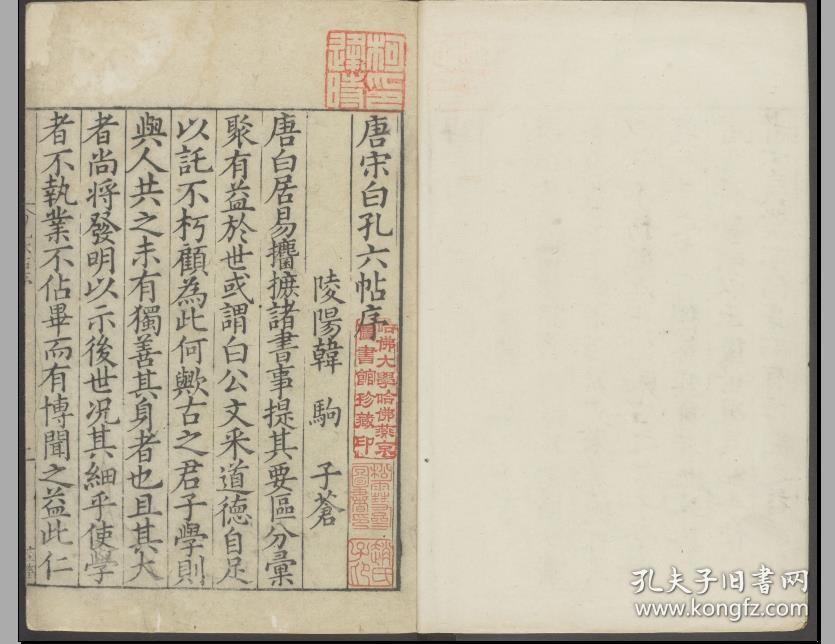 唐宋白孔六帖序
陵陽韓駒子蒼
唐白居易攟摭諸書事提其要區分彙
聚有益於世或謂白公文采道德自足
以託不朽顧為此何歟古之君子學則
與人共之未有獨善其身者也且其大
者尚将發明以示後世况其細乎使學
者不執業不佔畢而有博聞之益此仁
哈佛大學哈佛燕京
圖書館珍藏印
孔夫子旧书网
www.kongfz.com